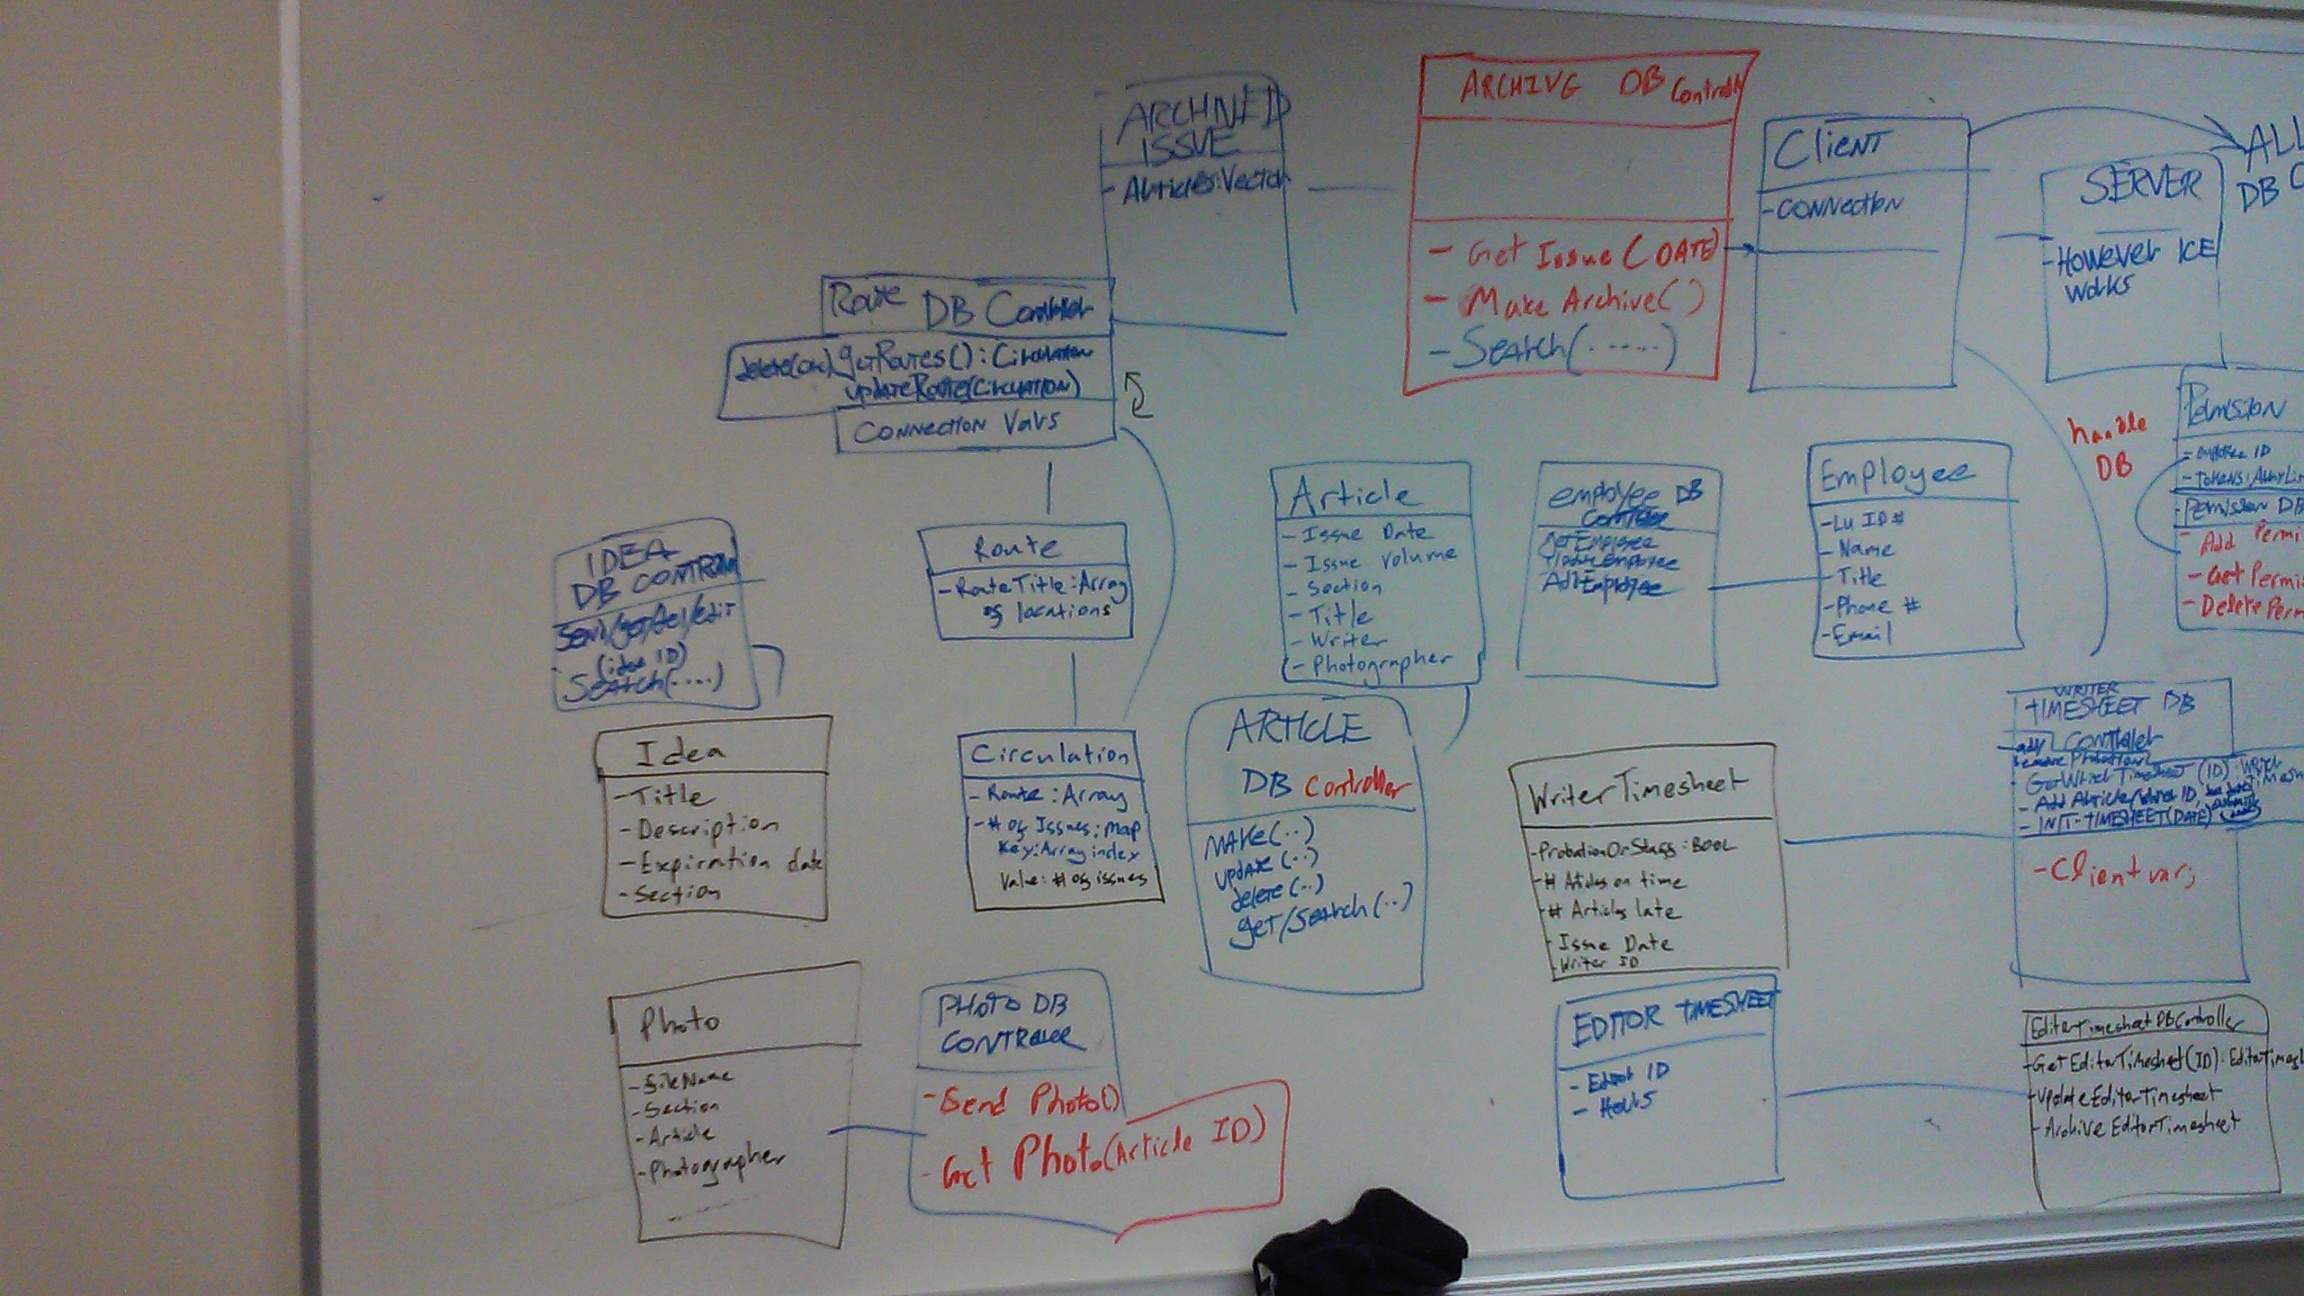 ARCHIVED
ISSUE
- Articles:Vector
ARCHIVE DB Controller
- Get Issue (DATE)
- Make Archive()
- Search(......)
Client
- Connection
ALL
DB C
SERVER
- However ICE
works
Route DB Controller
getRoutes(): Circulation
updateRoute(Circulation)
Connection Vars
handle
DB
Permission
ID
- Tokens:
Permission DB
- Add Permi
- Get Permi
- Delete Perm
IDEA
DB CONTROLLER
Send/get/del/edit
(idea ID)
Search(....)
Route
- RouteTitle:Array
of locations
Article
- Issue Date
- Issue Volume
- Section
- Title
- Writer
- Photographer
employee DB
Controller
getEmployee
UpdateEmployee
AddEmployee
Employee
- Lu ID#
- Name
- Title
- Phone #
- Email
Idea
- Title
- Description
- Expiration date
- Section
Circulation
- Route:Array
- # of Issues:map
Key:Array index
Value:# of issues
ARTICLE
DB Controller
MAKE(..)
update(..)
delete(..)
get/Search(..)
WriterTimesheet
- ProbationOrStaff:BOOL
- # Articles on time
- # Articles late
- Issue Date
- Writer ID
WRITER
TIMESHEET DB
Controller
- GetWriterTimesheet (ID):
- Add Article
- INIT-TIMESHEET(DATE)
- Client var;
Photo
- fileName
- Section
- Article
- Photographer
PHOTO DB
CONTROLLER
- Send Photo()
- Get Photo(Article ID)
EDITOR TIMESHEET
- Editor ID
- Hours
EditorTimesheetDBController
- GetEditorTimesheet(ID): EditorTimesh
- UpdateEditorTimesheet
- ArchiveEditorTimesheet